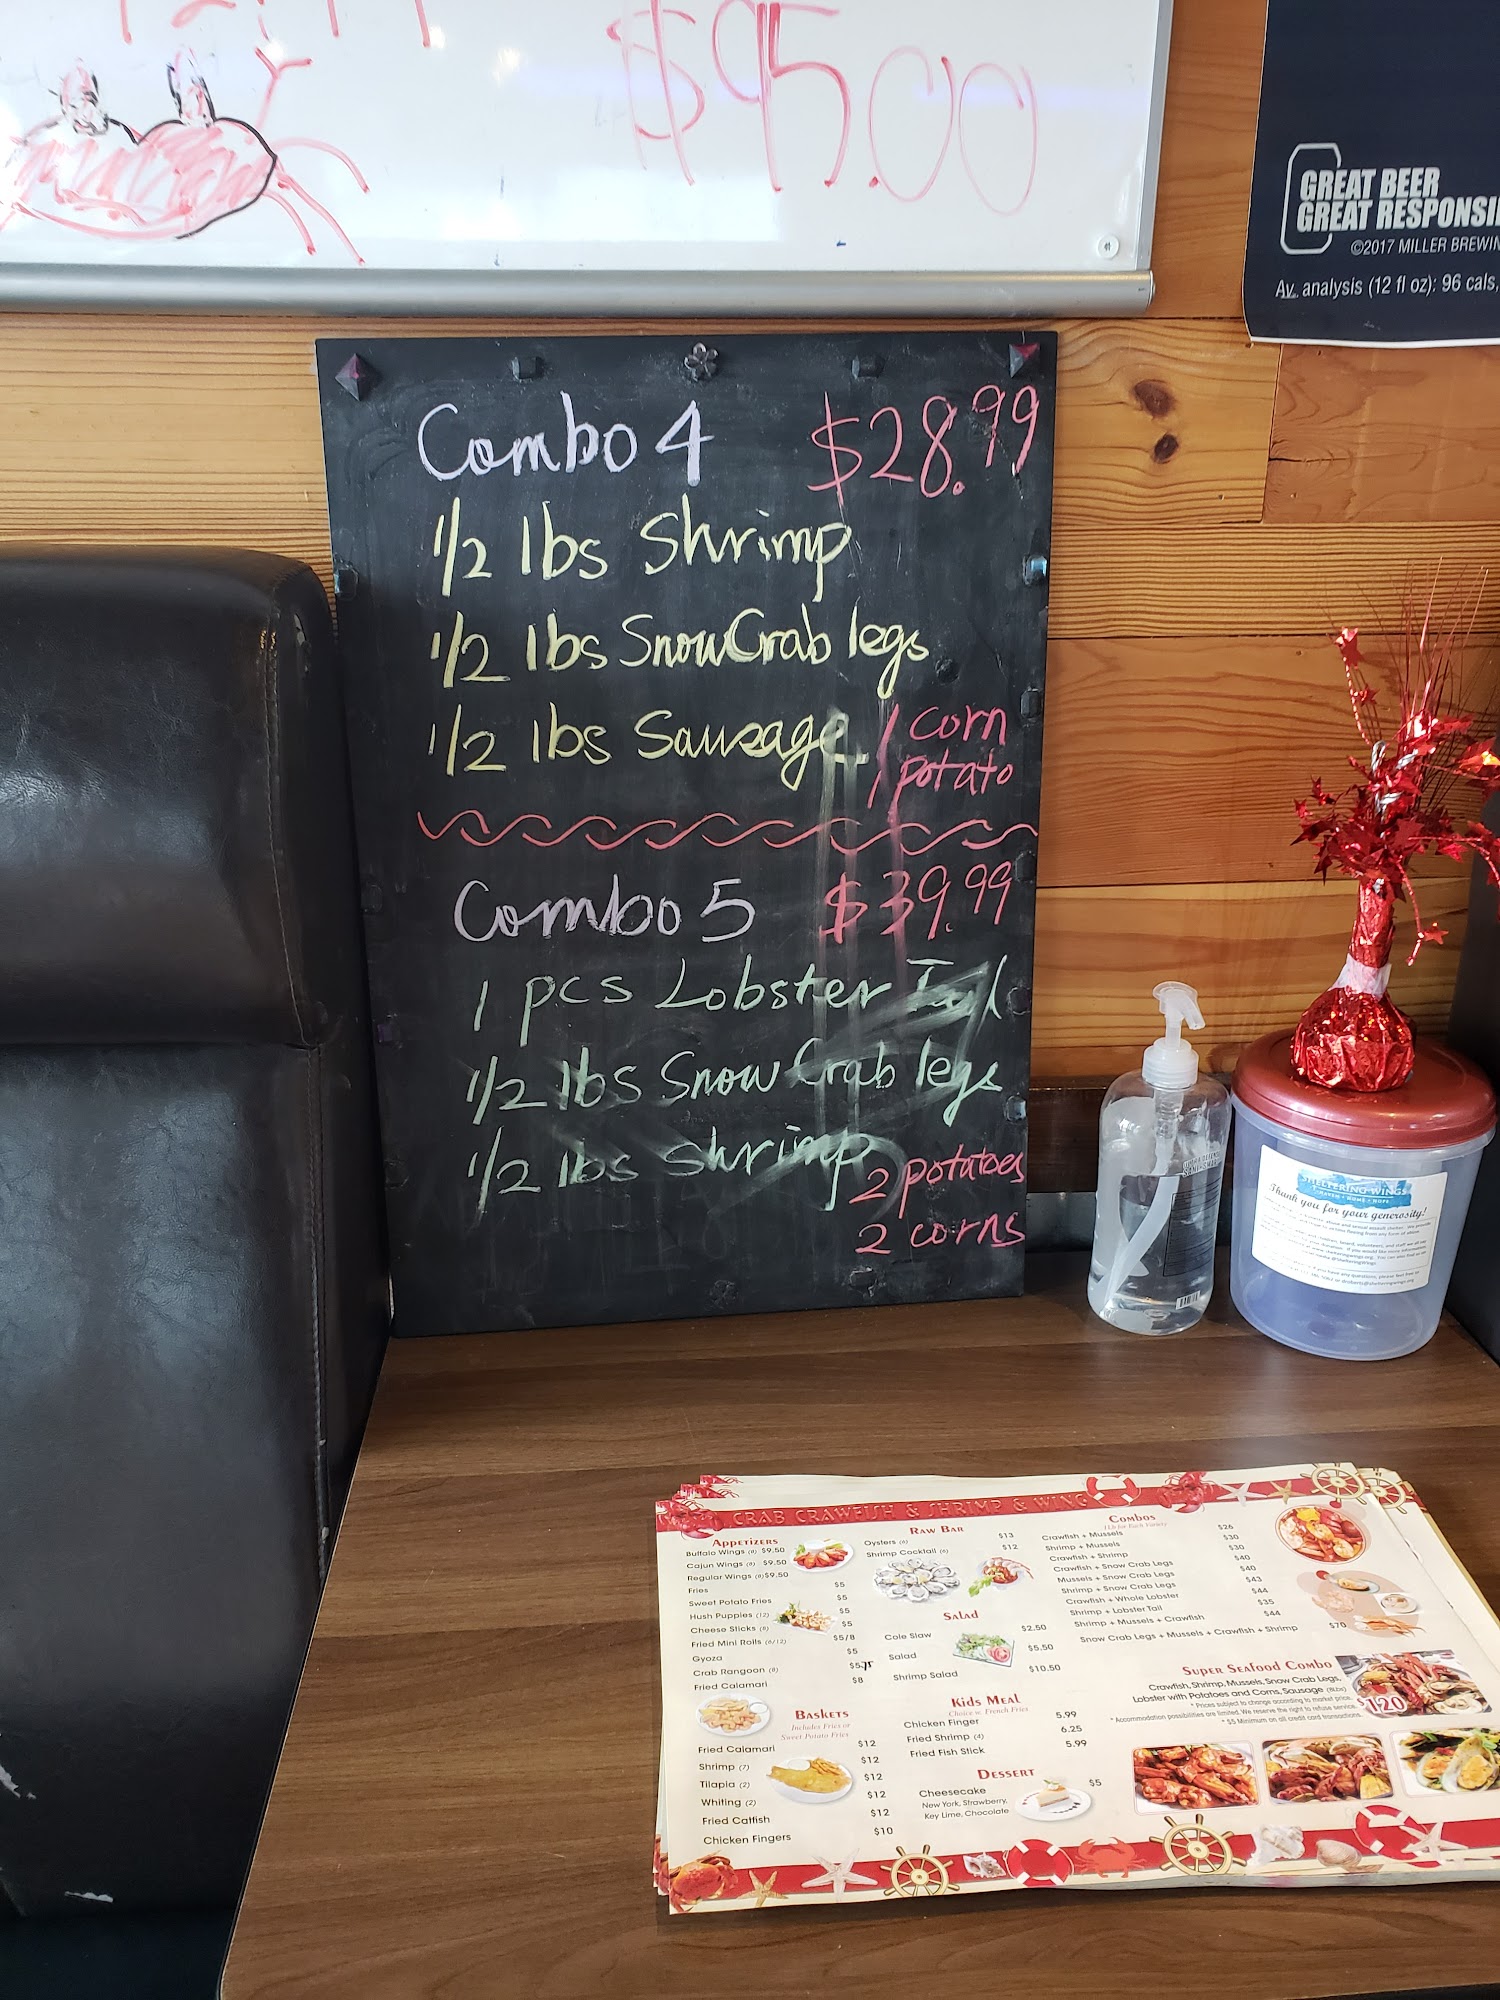 $95.00
GREAT BEER
GREAT
©2017 MILLER
Av. analysis (12 fl oz): 96 cals,
Combo 4 $28.99
1/2 lbs Shrimp
1/2 lbs Snow Crab legs
1/2 lbs Sausage
1 corn
1 potato
Combo 5 $39.99
1 pcs Lobster Tail
1/2 lbs Snow Crab legs
1/2 lbs Shrimp
2 potatoes
2 corns
SHELTERING WINGS
HAVEN • HOME • HOPE
Thank you for your generosity!
CRAB CRAWFISH & SHRIMP & WING
APPETIZERS
Buffalo Wings (8) $9.50
Cajun Wings (8) $9.50
Regular Wings (8) $9.50
Fries $5
Sweet Potato Fries $5
Hush Puppies (12) $5
Cheese Sticks (8) $5
Fried Mini Rolls (6/12) $5/8
Gyoza $5
Crab Rangoon (8) $5.75
Fried Calamari $8
BASKETS
Includes Fries or
Sweet Potato Fries
Fried Calamari $12
Shrimp (7) $12
Tilapia (2) $12
Whiting (2) $12
Fried Catfish $12
Chicken Fingers $10
RAW BAR
Oysters (6) $13
Shrimp Cocktail (6) $12
SALAD
Cole Slaw $2.50
Salad $5.50
Shrimp Salad $10.50
KIDS MEAL
Choice w. French Fries
Chicken Finger 5.99
Fried Shrimp (4) 6.25
Fried Fish Stick 5.99
DESSERT
Cheesecake $5
New York, Strawberry,
Key Lime, Chocolate
COMBOS
1Lb for Each Variety
Crawfish + Mussels $26
Shrimp + Mussels $30
Crawfish + Shrimp $30
Crawfish + Snow Crab Legs $40
Mussels + Snow Crab Legs $40
Shrimp + Snow Crab Legs $43
Crawfish + Whole Lobster $44
Shrimp + Lobster Tail $35
Shrimp + Mussels + Crawfish $44
Snow Crab Legs + Mussels + Crawfish + Shrimp $70
SUPER SEAFOOD COMBO
Crawfish, Shrimp, Mussels, Snow Crab Legs,
Lobster with Potatoes and Corns, Sausage (8Lbs)
$120
* Prices subject to change according to market price.
* Accommodation possibilities are limited. We reserve the right to refuse service.
* $5 Minimum on all credit card transactions.